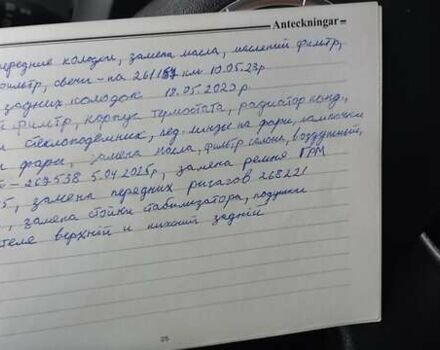 Anteckningar
передние колодки, замена масла, масленый фильтр,
фильтр, свечи - на 261157 км 10.05.23р
задних колодок 18.05.2023р
фильтр, корпус термостата, радиатор конд.,
стеклоподъёмник, лед. линзы на фары, лампочки
фары, замена масла, фильтр салона, воздушный,
- 267538 5.04.2025р, замена ремня ГРМ
замена передних рычагов 268221
, замена стойки стабилизатора, подушки
верхний и нижний задний
25